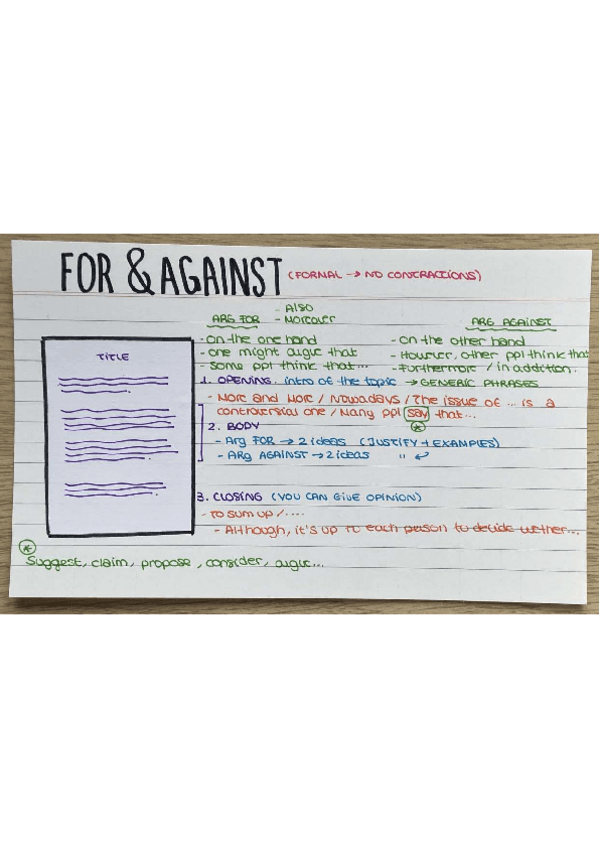 FOR & AGAINST (FORMAL → NO CONTRACTIONS)
- Also
ARG FOR - Moreover ARG AGAINST
- On the one hand - On the other hand
- One might argue that - However, other ppl think that
- Some ppl think that... - Furthermore / in addition.
TITLE
1. OPENING. intro of the topic → GENERIC PHRASES
- More and more / Nowadays / The issue of ... is a
controversial one / Many ppl say that...
*
2. BODY
- Arg FOR → 2 ideas (JUSTIFY + EXAMPLES)
- ARg AGAINST → 2 ideas " ↲
3. CLOSING (YOU CAN GIVE OPINION)
- To sum up /....
- Although, it's up to each person to decide wether...
*
Suggest, claim, propose, consider, argue...